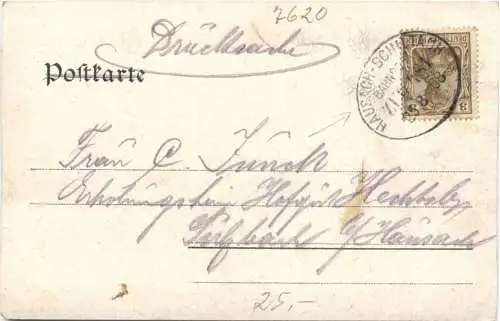 7620
Drucksache
Postkarte
HAUSACH-SCHILTACH
BAHNPOST
Frau C. Junck
Erholungsheim Hofgut Hechtsberg
b/Hausach
25,-